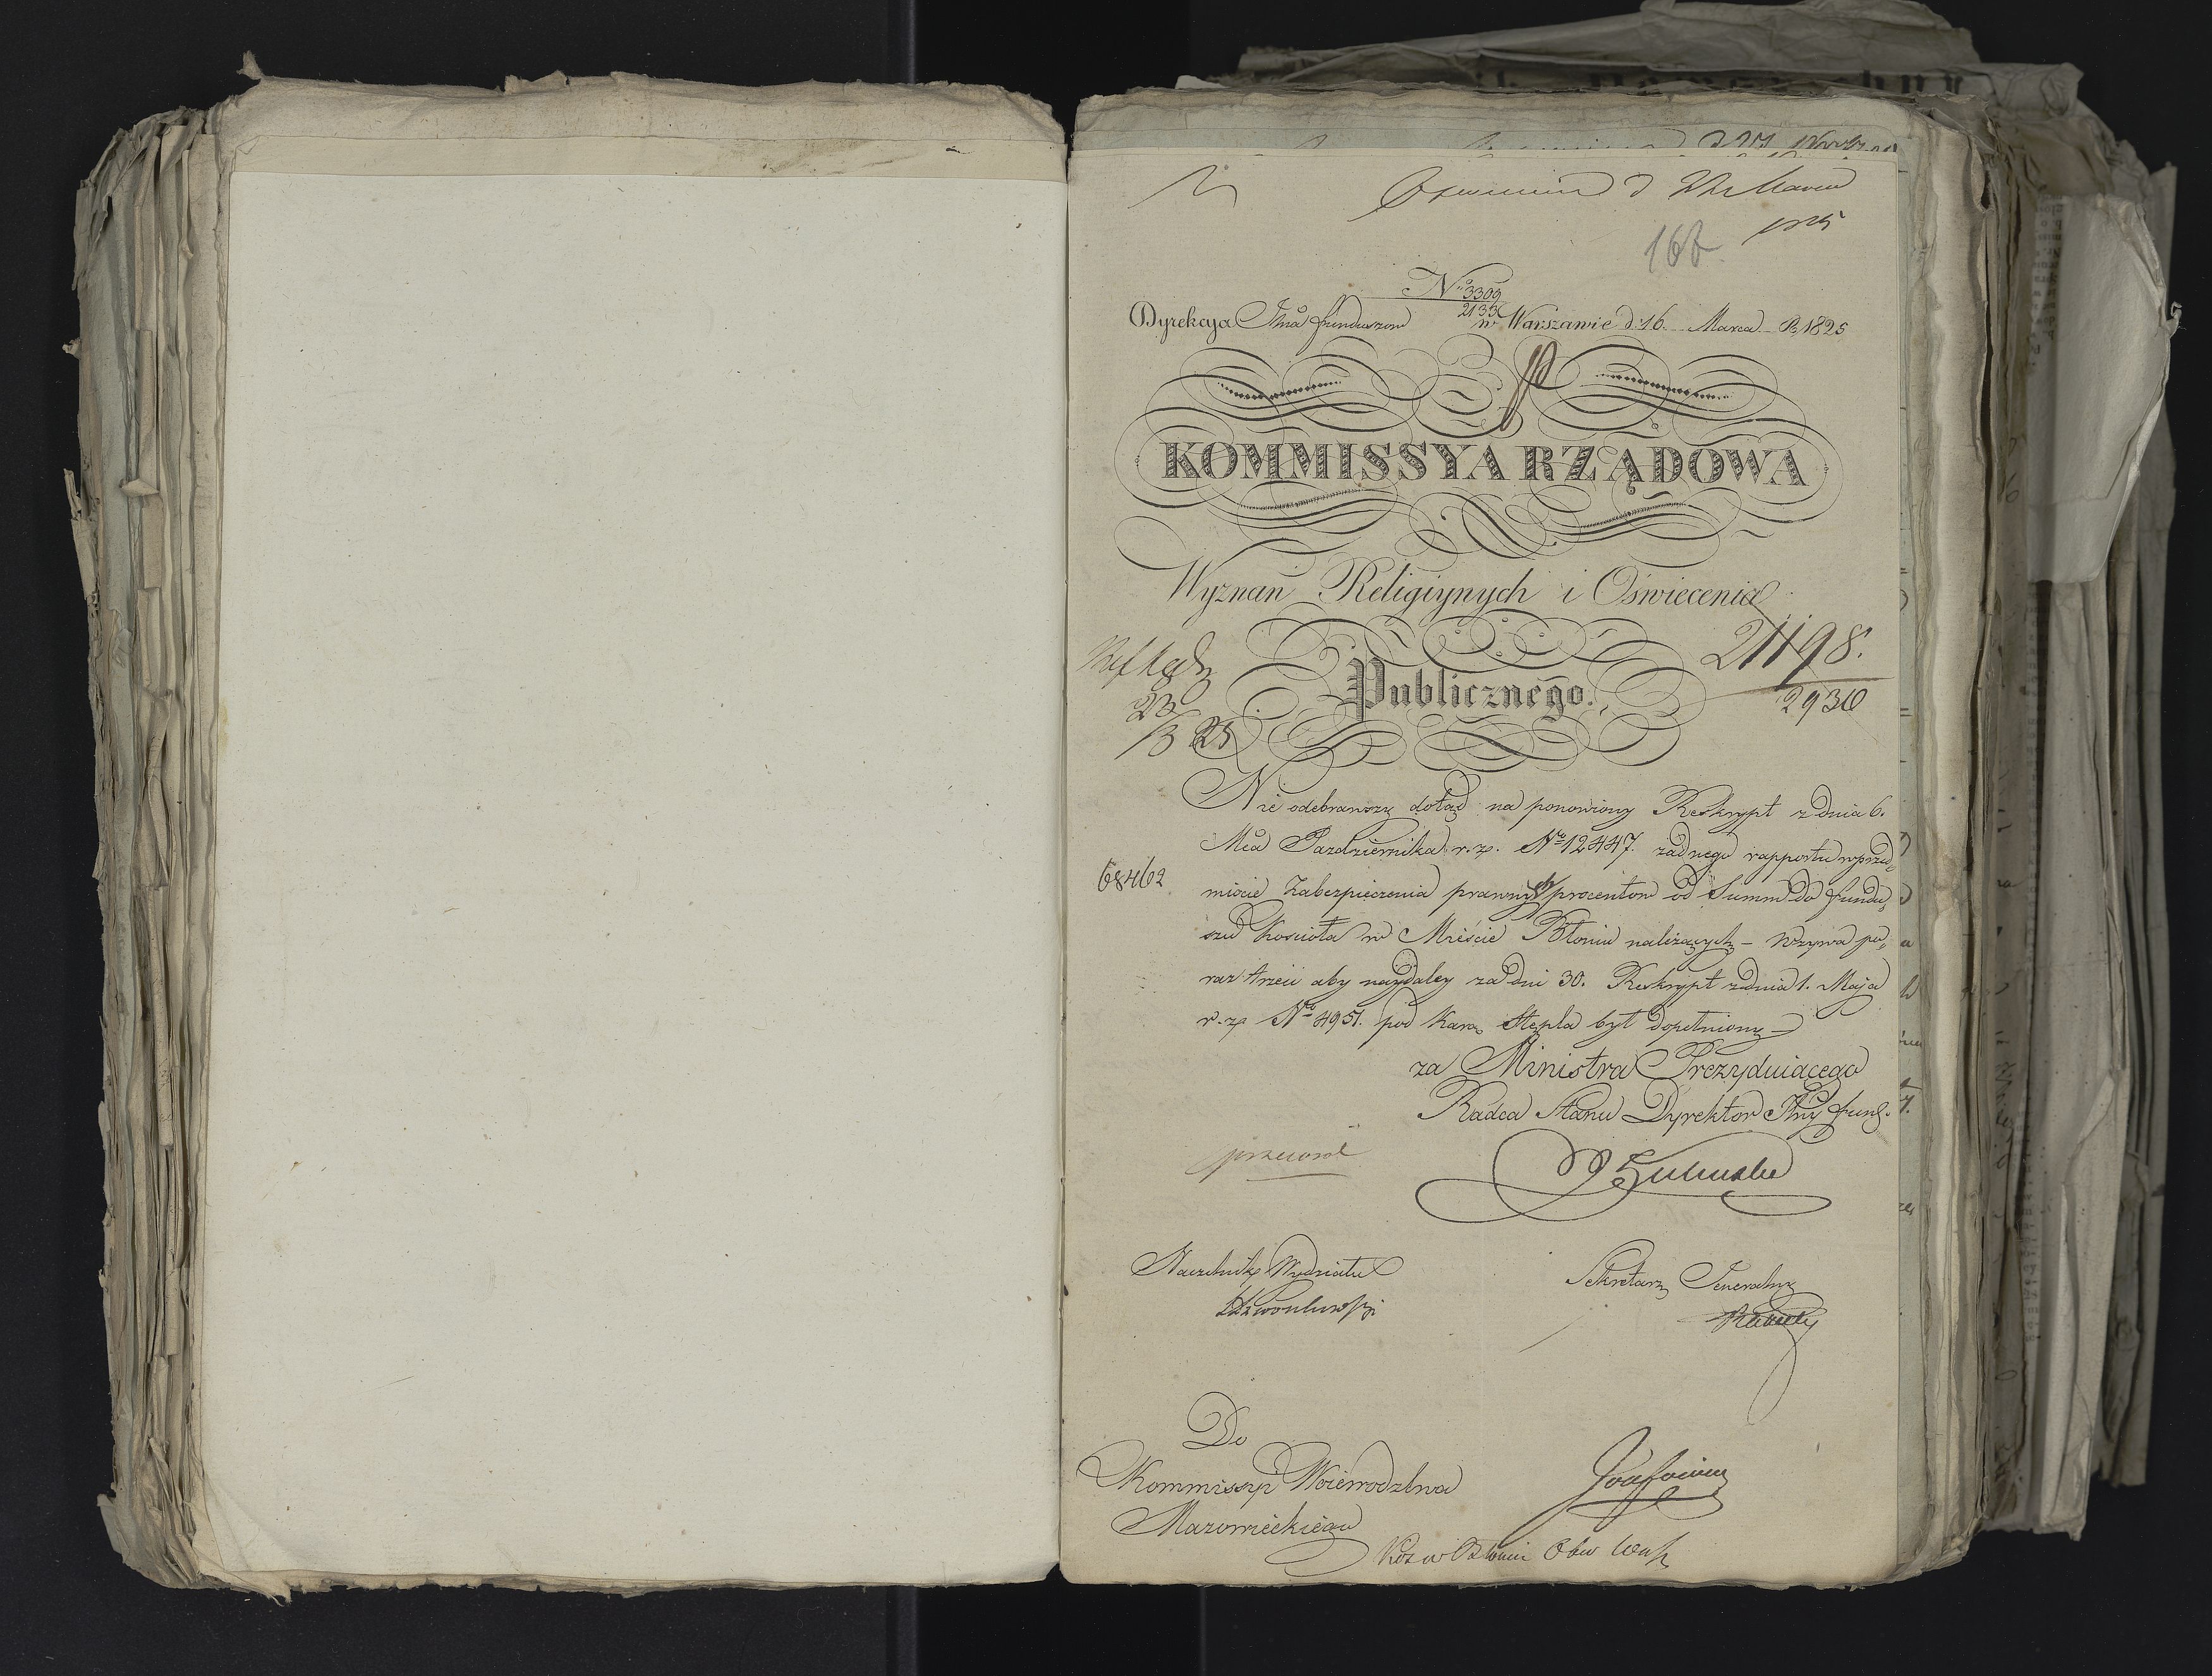 1825
166
No 3309
2133
Dyrekcya Jlna funduszow w Warszawie d. 16. Marca R. 1825
KOMMISSYA RZĄDOWA
Wyznań Religiynych i Oświecenia
21198.
2930
Publicznego.
23
/3 25
Nie odebrawszy dotąd na ponowiony Reskrypt z dnia 6.
Mca Pazdziernika r. z. No 12447. zadnego rapportu wprzed-
68462
miocie Zabezpieczenia prawnych procentow od Summ do fundu-
szu Kościoła w Mieście Błoniu należących – wzywa po-
raz trzeci aby naydaley za dni 30. Reskrypt z dnia 1. Maja
r. z. No 4951. pod karą Stępla był dopełniony –
za Ministra Prezyduiącego
Radca Stanu Dyrektor Jlny fund.
Naczelnik Wydziału
Sekretarz Jeneralny
Do
Kommissyi Woiewodztwa
Mazowieckiego
Koś w Błoniu Obw Wars